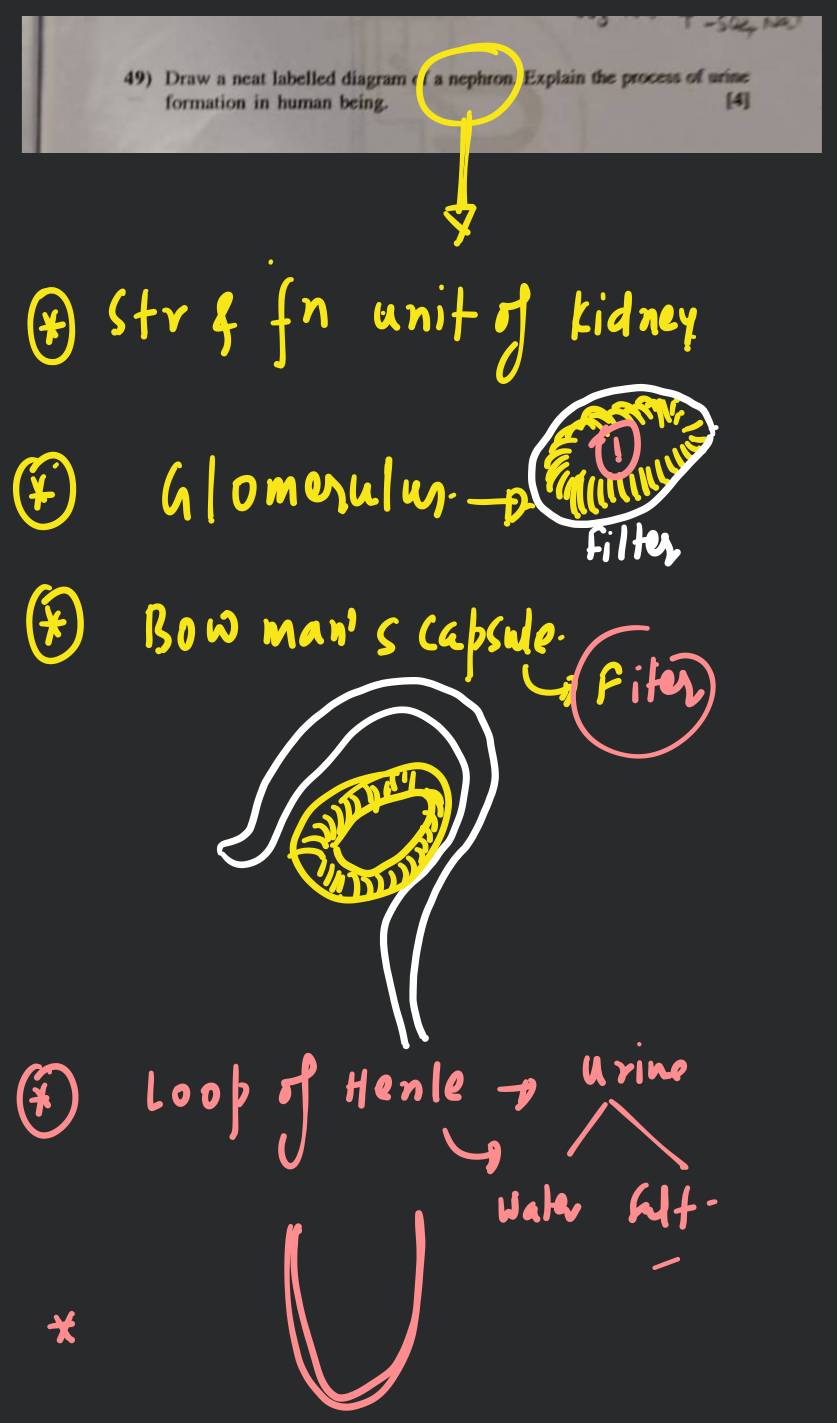 49) Draw a neat labelled diagram of a nephron. Explain the process of urine
formation in human being. [4]
* Str & fn unit of kidney
* Glomerulus.
Filter
* Bowman's capsule.
Fiter
* Loop of Henle → urine
Water Salt
*